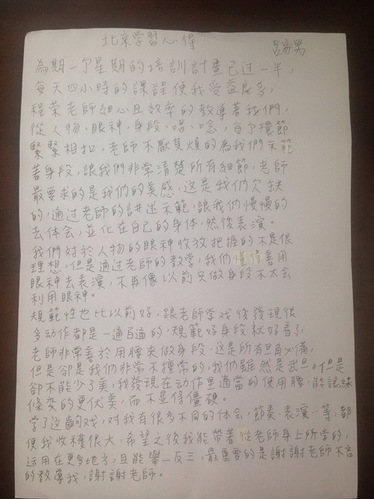 北京学習心得
呂家男
為期一个星期的培訓計畫已过一半，
每天四小時的課程使我受益良多，
程荣老師細心且效率的教導著我們，
從人物、眼神、身段、唱、唸，每个環節
緊緊相扣，老師不厭其煩的為我們示範
著身段，讓我們非常清楚所有細節，老師
最要求的是我們的美感，这是我們欠缺
的，通过老師的講述示範，讓我們慢慢的
去体会，並化在自己的身体，然後表演。
我們对於人物的眼神收放把握的不是很
理想，但是通过老師的教学，我們懂得善用
眼神去表演，不再像以前只做身段不太会
利用眼神。
規範性也比以前好，跟老師学戏後發現很
多动作都是一通百通的，規範好身段就好看了，
老師非常善於用腰來做身段，这是所有旦角必備，
但是卻是我們非常不擅常的，我們雖然是武旦，但是
卻不能少了美，我發現在动作里適當的使用腰，能讓線
條变的更优美，而不是很僵硬。
学了这齣戏，对我有很多不同的体会，節奏、表演…等都
使我收穫很大，希望之後我能帶著從老師身上所學的，
运用在更多地方，且能舉一反三，最重要的是謝謝老師不吝
的教導我，謝謝老師。